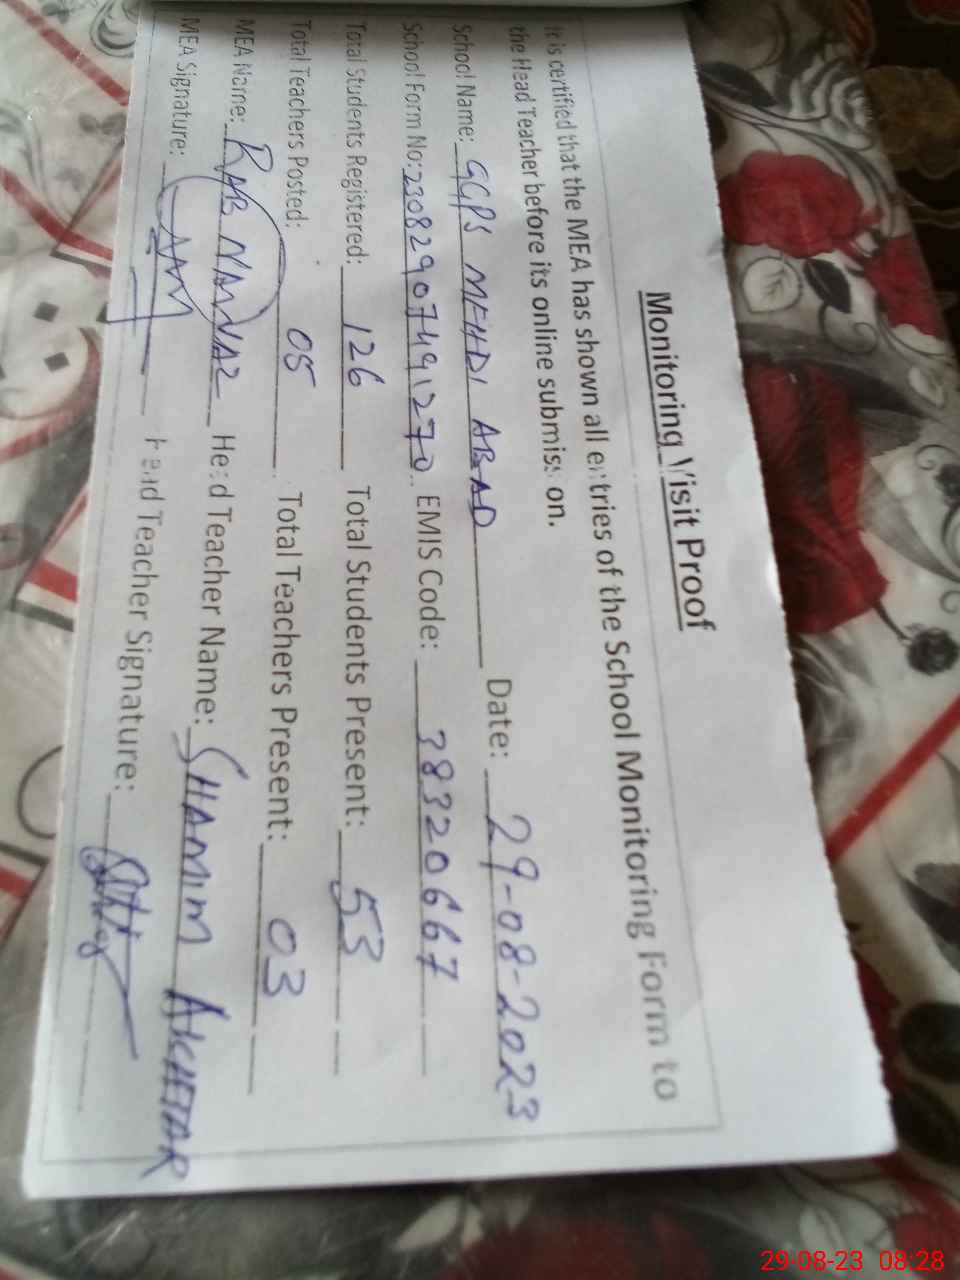 Monitoring Visit Proof
It is certified that the MEA has shown all entries of the School Monitoring Form to
the Head Teacher before its online submission.
School Name: GGPS MEHDI ABAD Date: 29-08-2023
School Form No: 23082907491270 EMIS Code: 38320667
Total Students Registered: 126 Total Students Present: 53
Total Teachers Posted: 05 Total Teachers Present: 03
MEA Name: RAB NAWAZ Head Teacher Name: SHAMIM AKHTAR
MEA Signature: Head Teacher Signature:
29-08-23 08:28